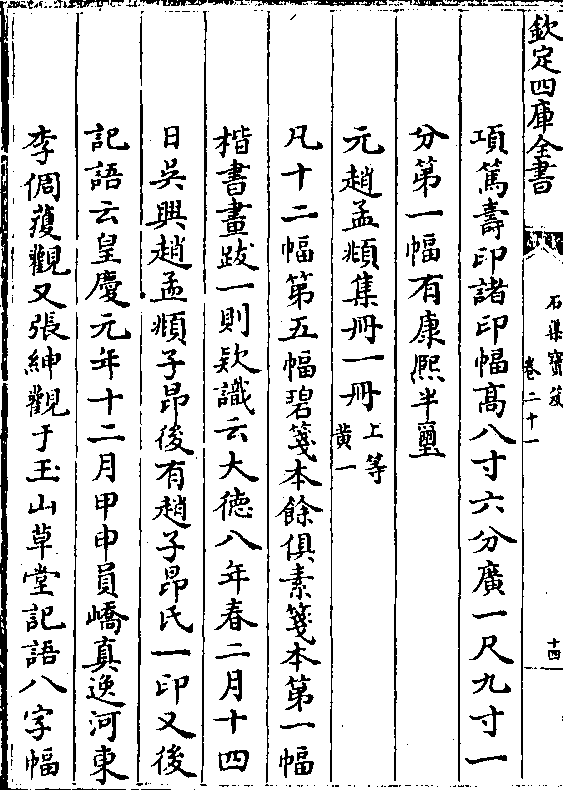 欽定四庫全書
石渠寳笈
卷二十一
十四
項篤壽印諸印幅高八寸六分廣一尺九寸一
分第一幅有康熙半璽
元趙孟頫集冊一冊上等
黄一
凡十二幅第五幅碧箋本餘俱素箋本第一幅
楷書畫跋一則欵識云大徳八年春二月十四
日吳興趙孟頫子昂後有趙子昂氏一印又後
記語云皇慶元年十二月甲申員嶠真逸河東
李倜䕶觀又張紳觀于玉山草堂記語八字幅